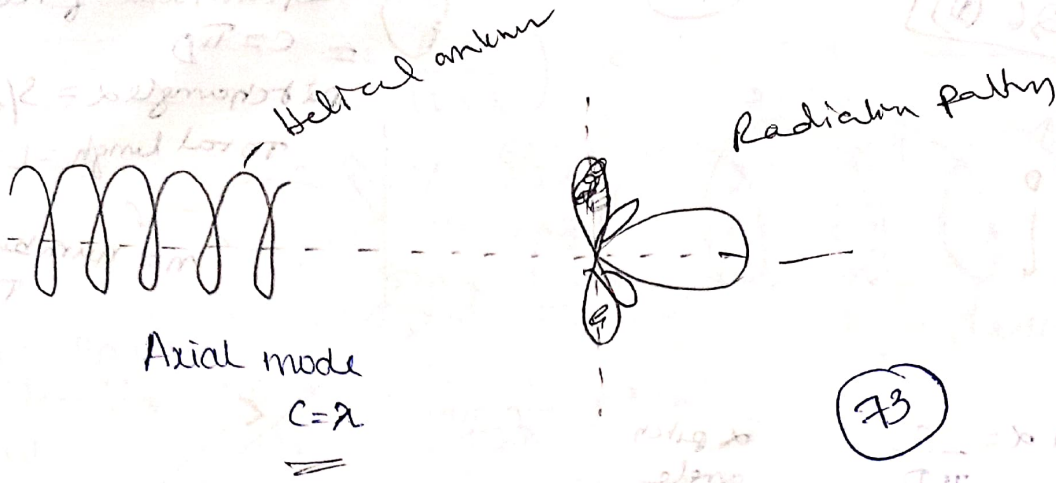 Helical antenna
Radiation pattern
Axial mode
C=λ
73